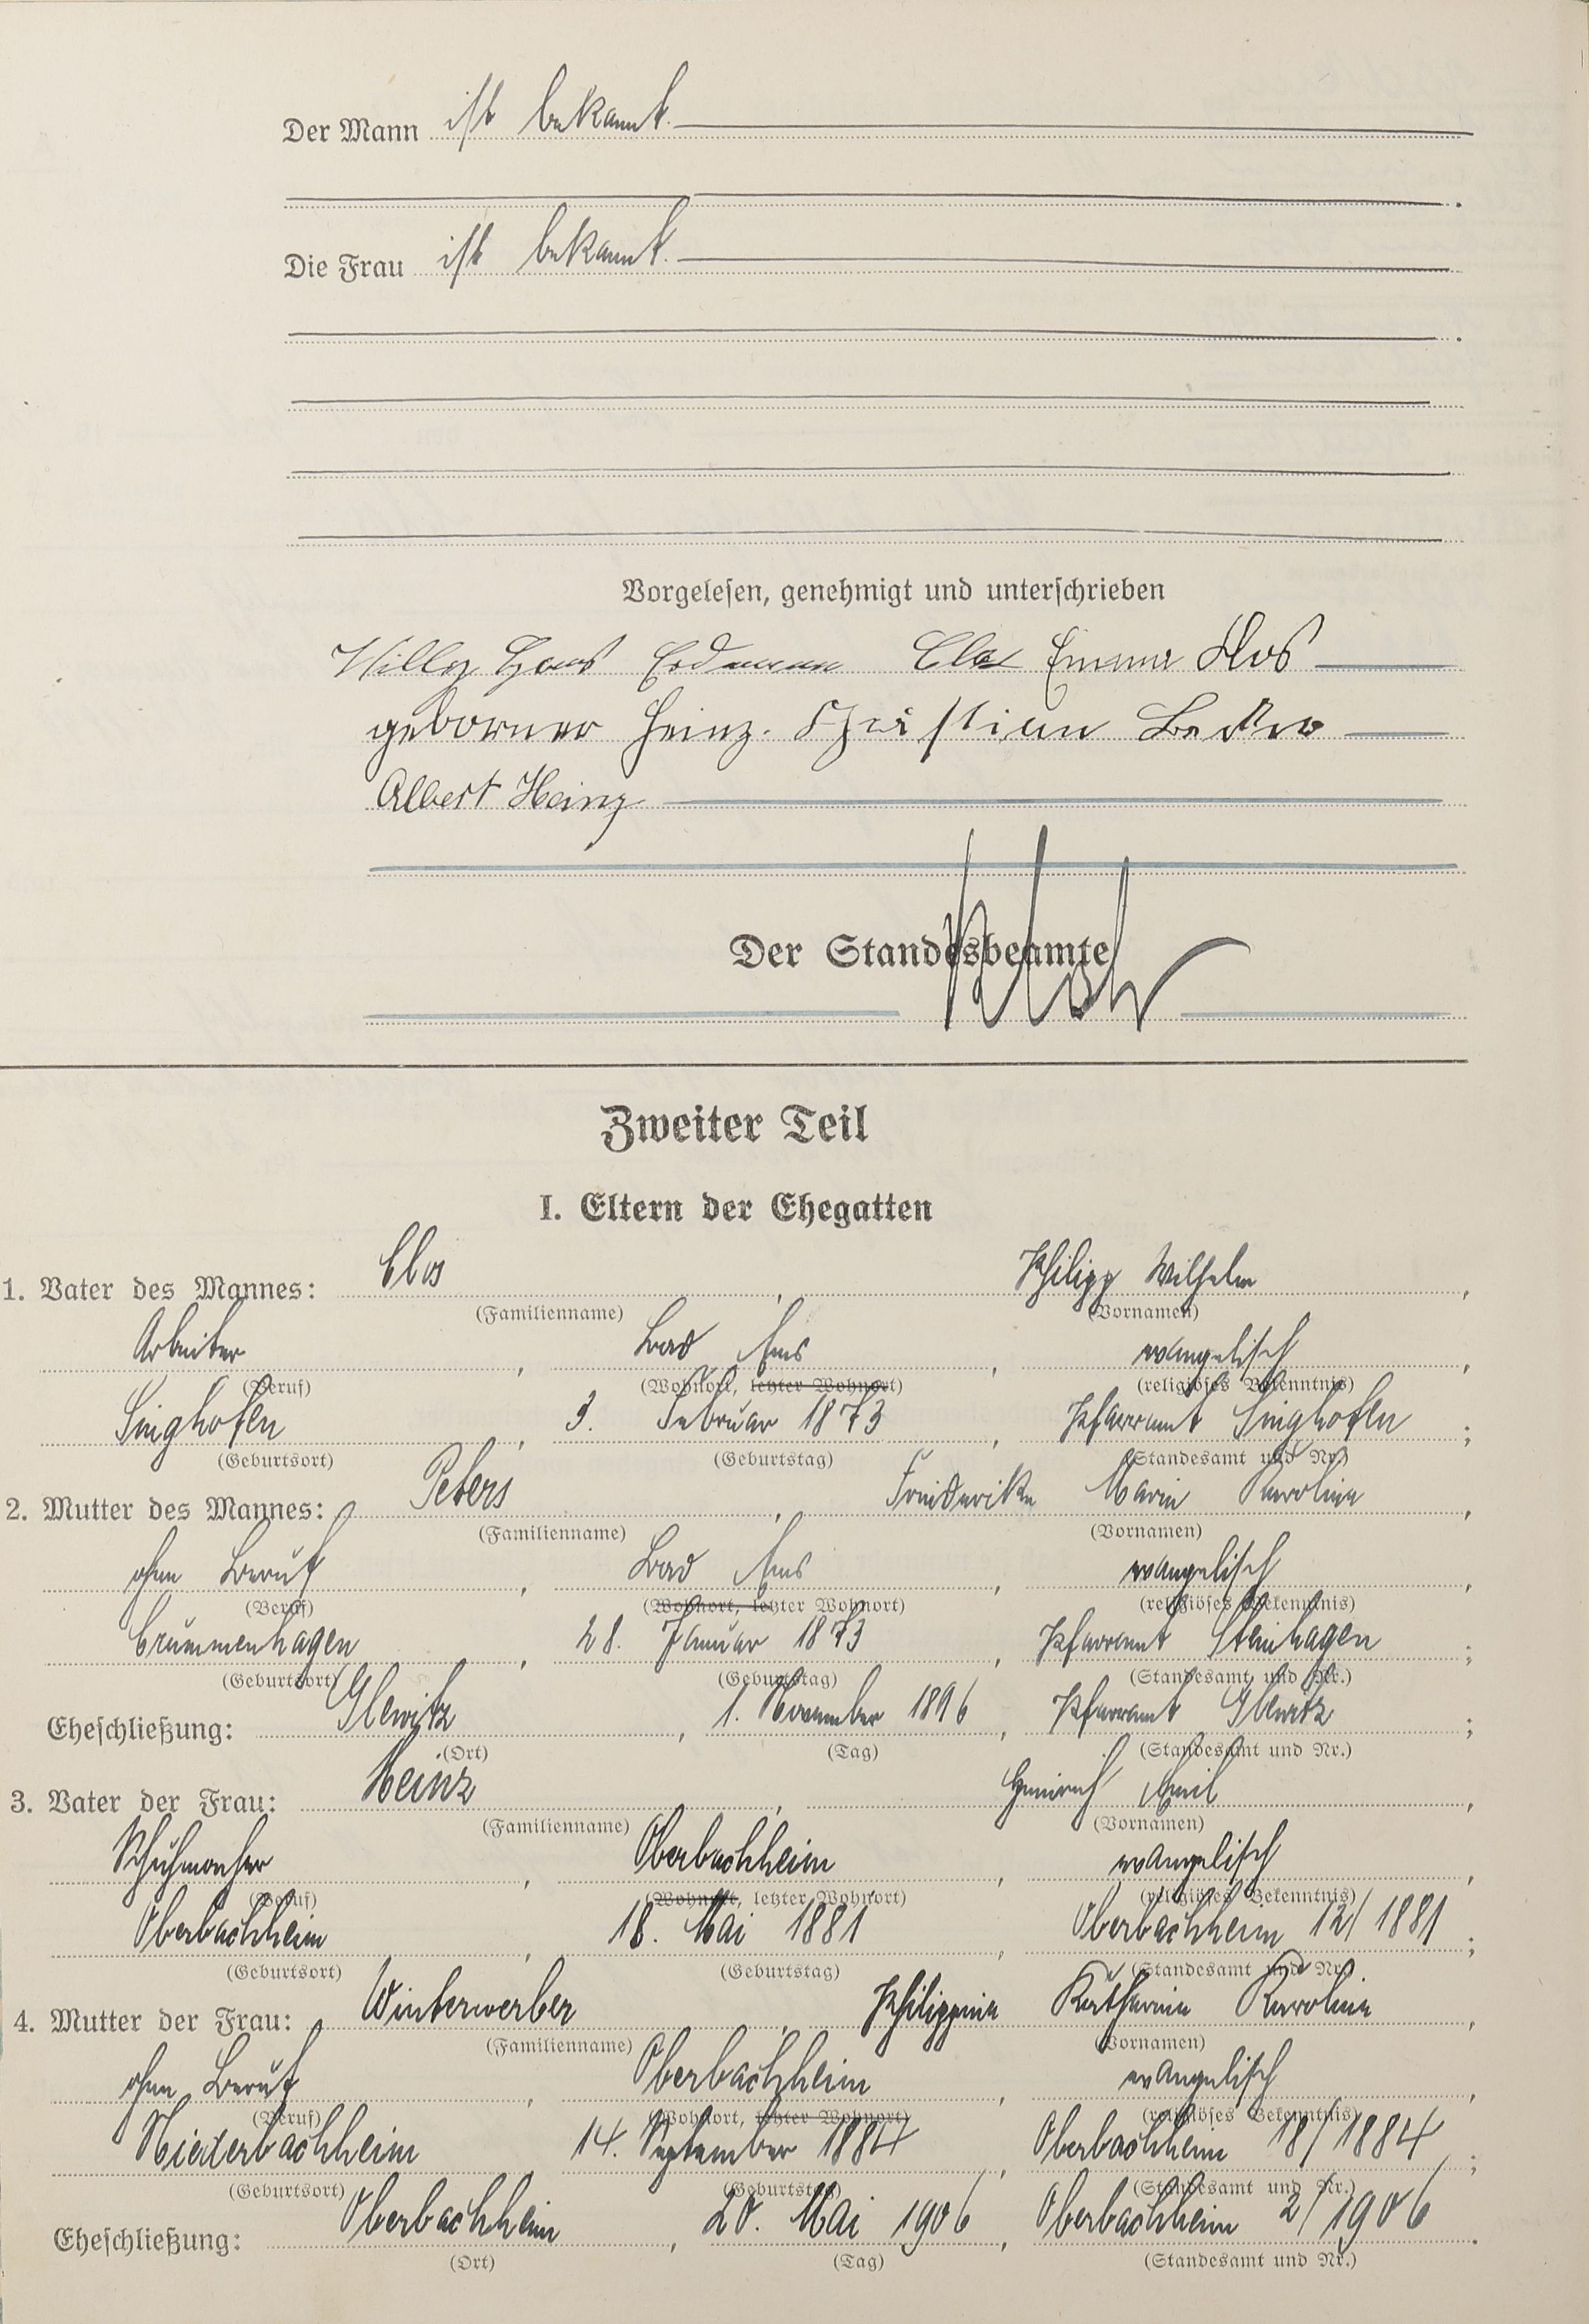 Der Mann ist bekannt.
Die Frau ist bekannt.
Vorgelesen, genehmigt und unterschrieben
Willy Hans Erdmann Clos Emma Clos
geborner Heinz. Christian Becker
Albert Heinz
Der Standesbeamte
Zweiter Teil
I. Eltern der Ehegatten
1. Vater des Mannes: Clos, Philipp Wilhelm,
(Familienname) (Vornamen)
Arbeiter, Bad Ems, evangelisch,
(Beruf) (Wohnort, letzter Wohnort) (religiöses Bekenntnis)
Singhofen, 3. Februar 1873, Pfarramt Singhofen;
(Geburtsort) (Geburtstag) (Standesamt und Nr.)
2. Mutter des Mannes: Peters, Friederike Marie Karoline,
(Familienname) (Vornamen)
ohne Beruf, Bad Ems, evangelisch,
(Beruf) (Wohnort, letzter Wohnort) (religiöses Bekenntnis)
Crummenhagen, 28. Januar 1873, Pfarramt Steinhagen;
(Geburtsort) (Geburtstag) (Standesamt und Nr.)
Eheschließung: Glewitz, 1. November 1896, Pfarramt Glewitz;
(Ort) (Tag) (Standesamt und Nr.)
3. Vater der Frau: Heinz, Heinrich Emil,
(Familienname) (Vornamen)
Schuhmacher, Oberbachheim, evangelisch,
(Beruf) (Wohnort, letzter Wohnort) (religiöses Bekenntnis)
Oberbachheim, 18. Mai 1881, Oberbachheim 12/1881;
(Geburtsort) (Geburtstag) (Standesamt und Nr.)
4. Mutter der Frau: Winterwerber, Philippine Katharine Karoline,
(Familienname) (Vornamen)
ohne Beruf, Oberbachheim, evangelisch,
(Beruf) (Wohnort, letzter Wohnort) (religiöses Bekenntnis)
Niederbachheim, 14. September 1884, Oberbachheim 18/1884;
(Geburtsort) (Geburtstag) (Standesamt und Nr.)
Eheschließung: Oberbachheim, 20. Mai 1906, Oberbachheim 2/1906.
(Ort) (Tag) (Standesamt und Nr.)